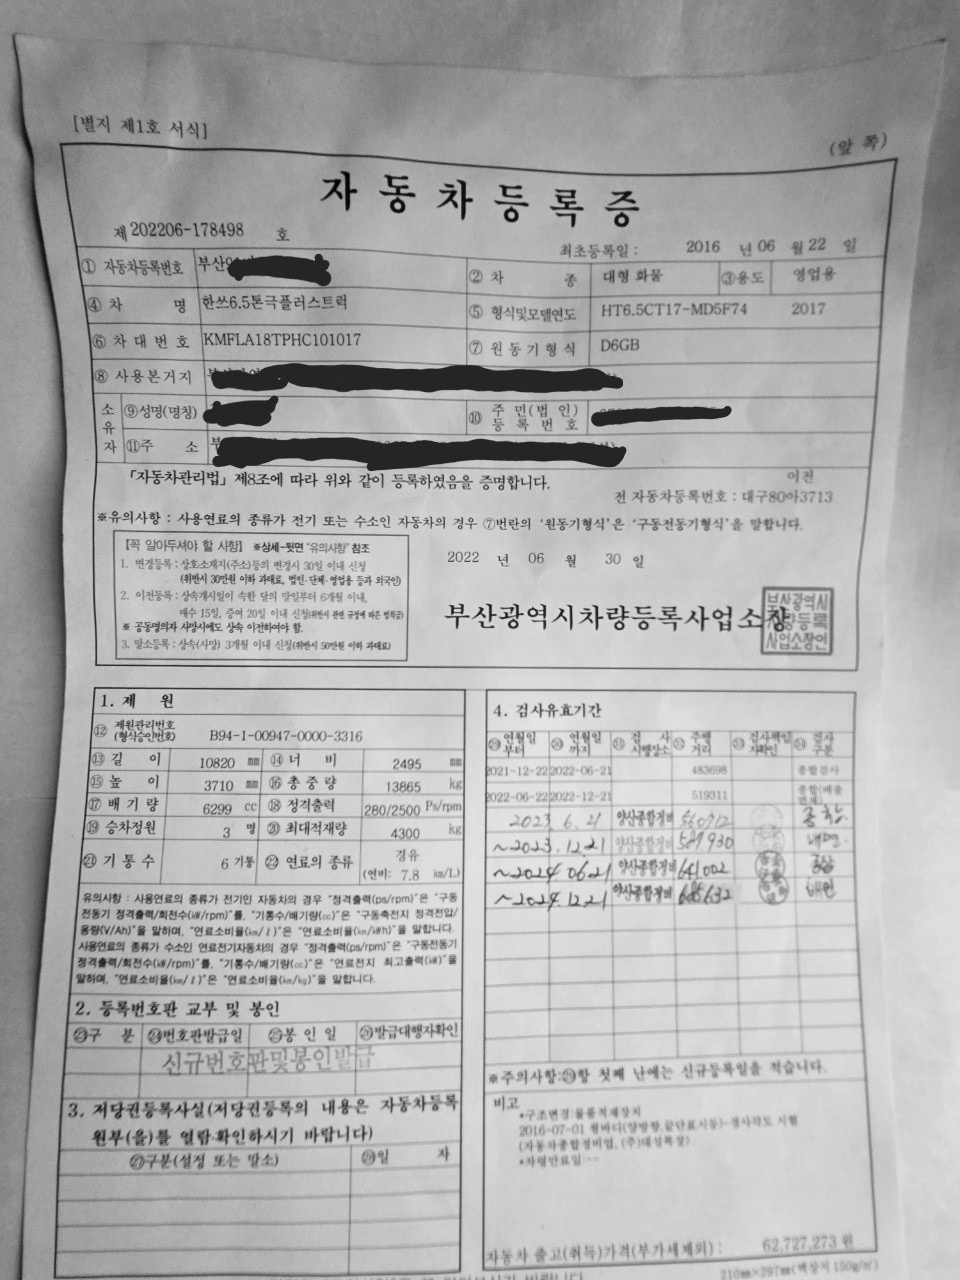 [별지 제1호 서식]
(앞 쪽)
자 동 차 등 록 증
제 202206-178498 호
최초등록일 : 2016 년 06 월 22 일
① 자동차등록번호 부산
② 차 종 대형 화물 ③용도 영업용
④ 차 명 한쓰6.5톤극플러스트럭
⑤ 형식및모델연도 HT6.5CT17-MD5F74 2017
⑥ 차 대 번 호 KMFLA18TPHC101017
⑦ 원 동 기 형 식 D6GB
⑧ 사 용 본 거 지
소유자
⑨성명(명칭)
⑩ 주 민(법 인) 등 록 번 호
⑪주 소
「자동차관리법」 제8조에 따라 위와 같이 등록하였음을 증명합니다.
이전
전 자동차등록번호 : 대구80아3713
※유의사항 : 사용연료의 종류가 전기 또는 수소인 자동차의 경우 ⑦번란의 '원동기형식'은 '구동전동기형식'을 말합니다.
[꼭 알아두셔야 할 사항] ※상세-뒷면 "유의사항" 참조
1. 변경등록 : 상호소재지(주소)등의 변경시 30일 이내 신청
(위반시 30만원 이하 과태료, 법인·단체·영업용 등과 외국인)
2. 이전등록 : 상속개시일이 속한 달의 말일부터 6개월 이내,
매수 15일, 증여 20일 이내 신청(위반시 관련 규정에 따른 범칙금)
※ 공동명의자 사망시에도 상속 이전하여야 함.
3. 말소등록 : 상속(사망) 3개월 이내 신청(위반시 50만원 이하 과태료)
2022 년 06 월 30 일
부산광역시차량등록사업소장
부산광역시
차량등록
사업소장인
1. 제 원
⑫ 제원관리번호 (형식승인번호) B94-1-00947-0000-3316
⑬ 길 이 10820 mm ⑭ 너 비 2495 mm
⑮ 높 이 3710 mm ⑯ 총 중 량 13865 kg
⑰ 배 기 량 6299 cc ⑱ 정격출력 280/2500 Ps/rpm
⑲ 승차정원 3 명 ⑳ 최대적재량 4300 kg
㉑ 기 통 수 6 기통 ㉒ 연료의 종류 경유 (연비: 7.8 km/L)
유의사항 : 사용연료의 종류가 전기인 자동차의 경우 "정격출력(ps/rpm)"은 "구
동전동기 정격출력/회전수(kW/rpm)"를, "기통수/배기량(cc)"은 "구동축전지 정격전압/
용량(V/Ah)"을 말하며, "연료소비율(km/ℓ)"은 "연료소비율(km/kWh)"을 말합니다.
사용연료의 종류가 수소인 연료전기자동차의 경우 "정격출력(ps/rpm)"은 "구동전동기
정격출력/회전수(kW/rpm)"를, "기통수/배기량(cc)"은 "연료전지 최고출력(kW)"을
말하며, "연료소비율(km/ℓ)"은 "연료소비율(km/kg)"을 말합니다.
2. 등록번호판 교부 및 봉인
㉓구 분 ㉔번호판발급일 ㉕봉 인 일 ㉖발급대행자확인
신규번호판및봉인발급
3. 저당권등록사실(저당권등록의 내용은 자동차등록
원부(을)를 열람·확인하시기 바랍니다)
㉗구분(설정 또는 말소) ㉘일 자
4. 검사유효기간
㉙ 연월일부터 ㉚ 연월일까지 ㉛ 검 사 시행장소 ㉜ 주행거리 ㉝ 검사책임자확인 ㉞ 검사구분
2021-12-22 2022-06-21 483698 종합검사
2022-06-22 2022-12-21 519311 종합(배출면제)
2023. 6. 21 양산종합정비 560712 종합
~2023.12.21 양산종합정비 587930
~2024.06.21 양산종합정비 641002 종합
~2024.12.21 양산종합정비
※주의사항:㉙항 첫째 난에는 신규등록일을 적습니다.
비고
*구조변경:물품적재장치
2016-07-01 윙바디(양방향,끝단표시등)-경사각도 시험
(자동차종합정비업, (주)대성특장)
*차령만료일:--
자동차 출고(취득)가격(부가세제외) : 62,727,273 원
210mm×297mm(백상지 150g/㎡)